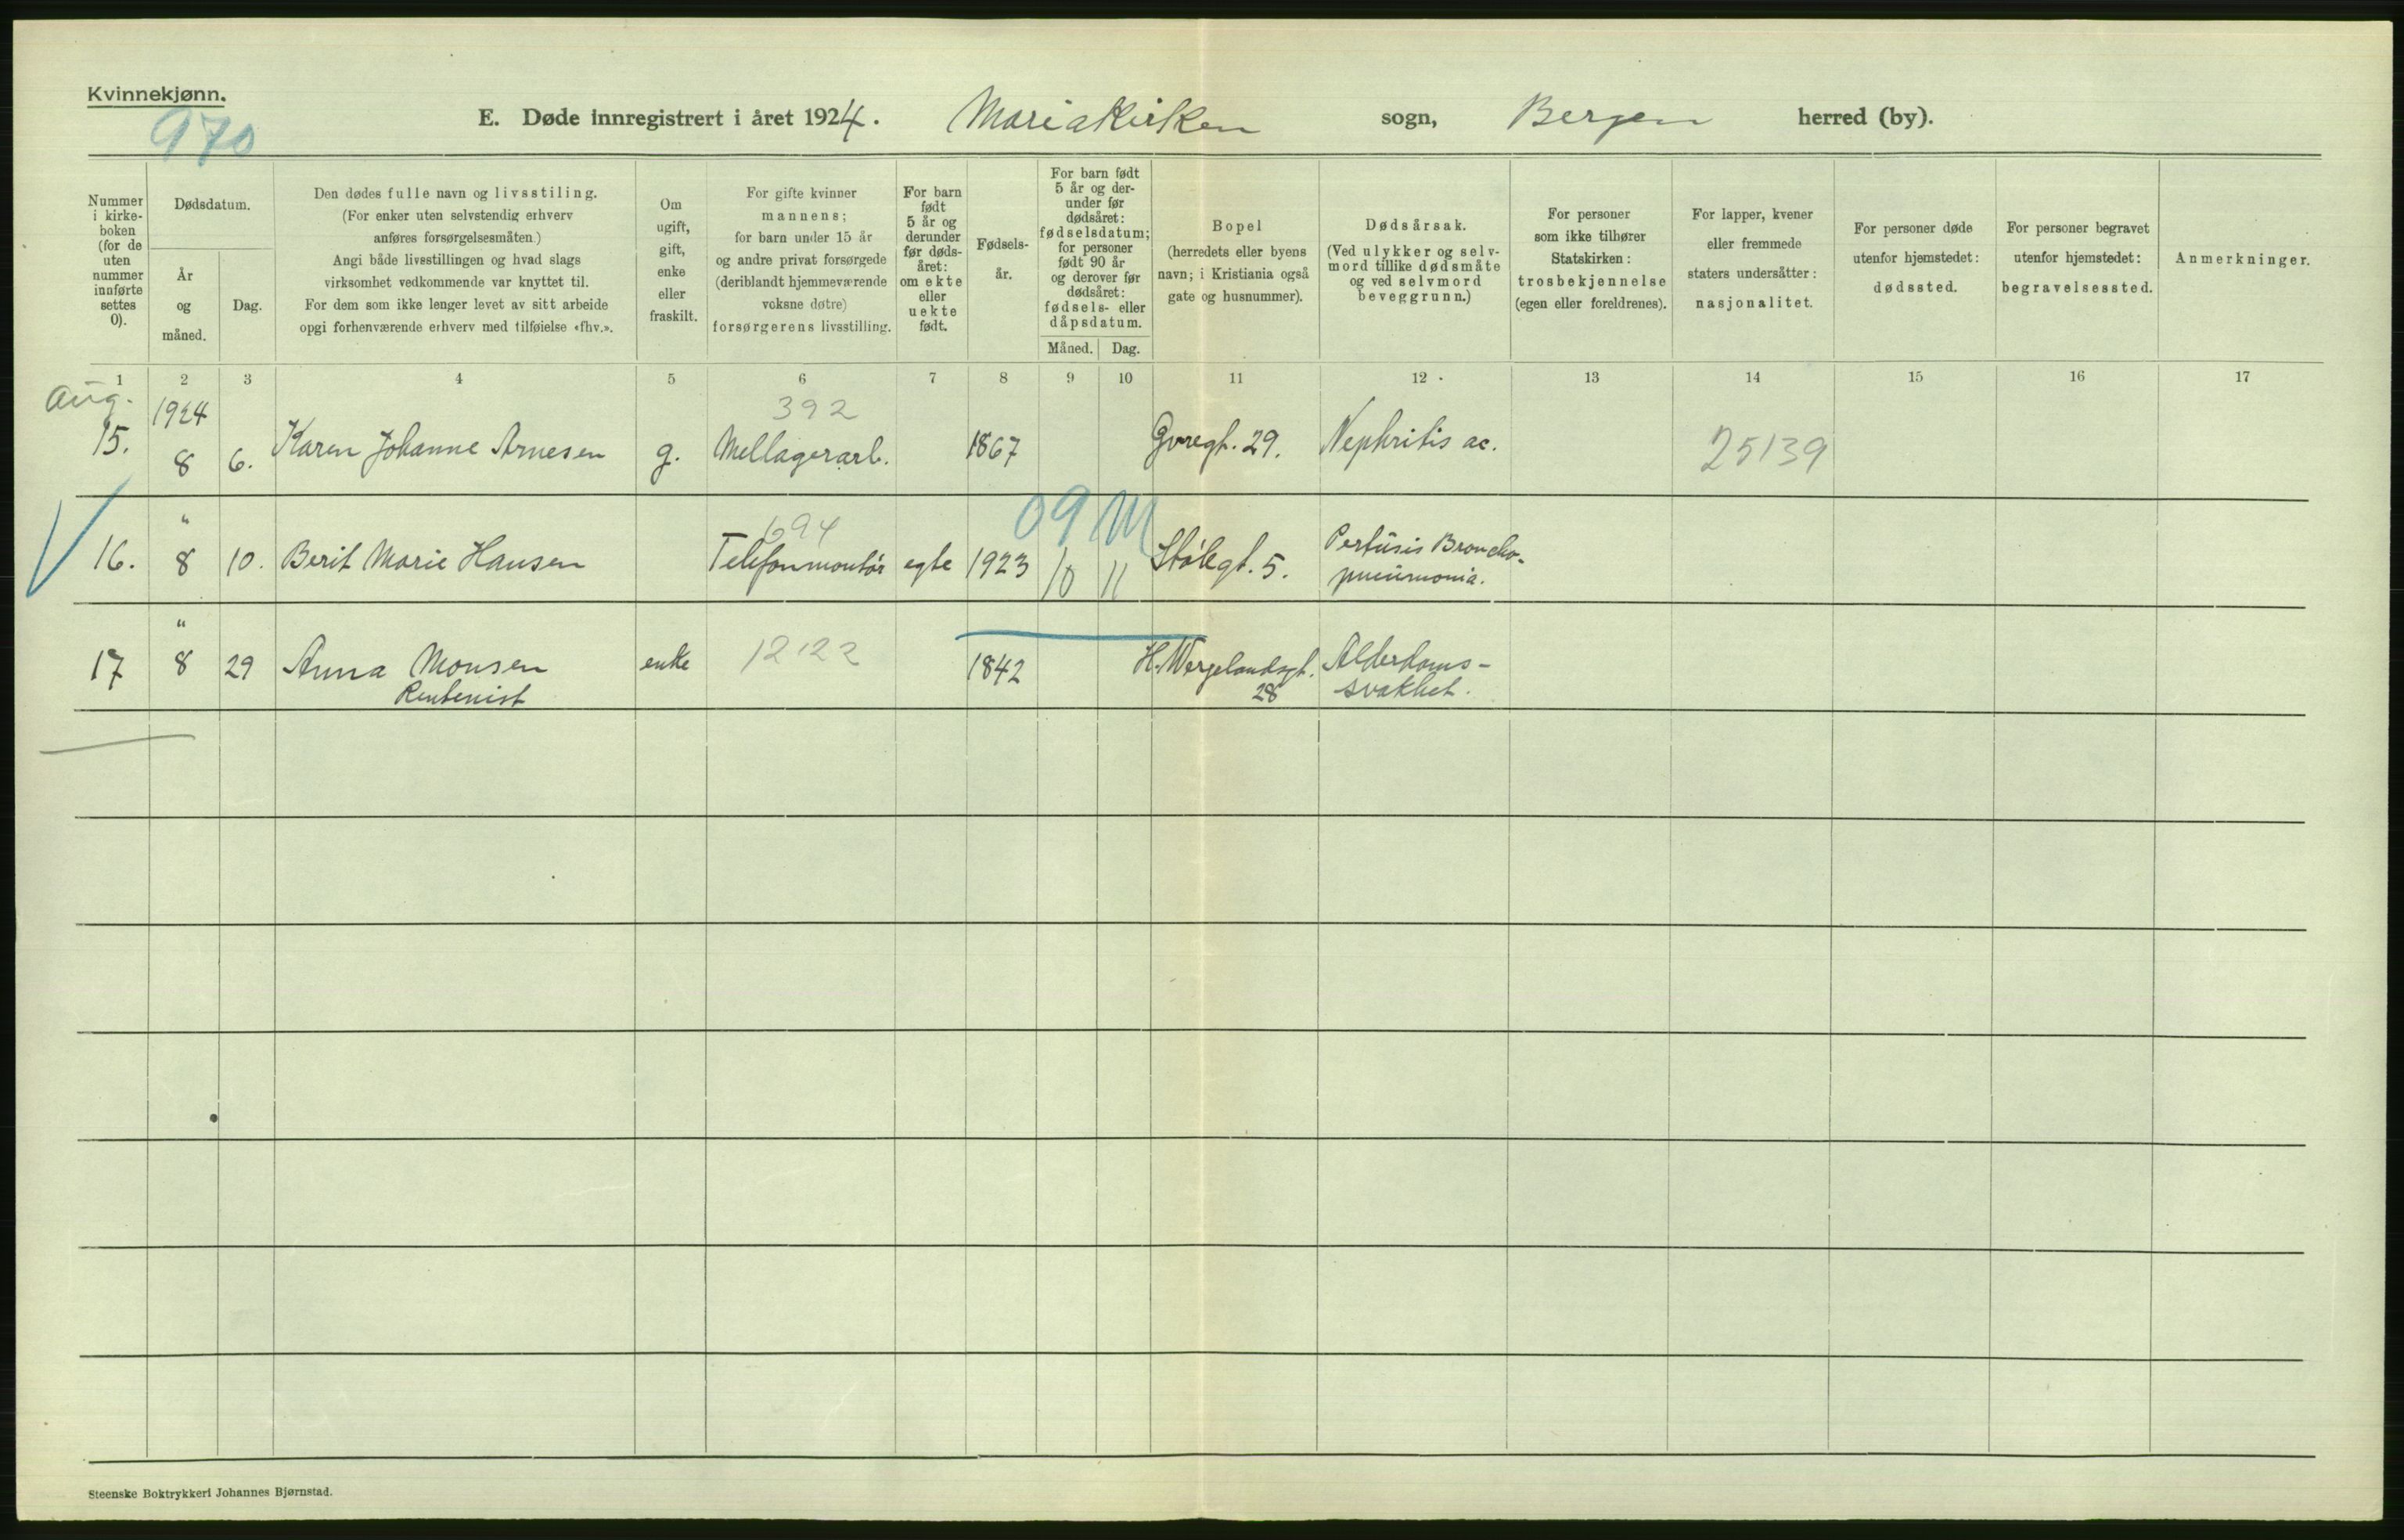 Kvinnekjønn.
970
E. Døde innregistrert i året 1924. Mariakirken sogn, Bergen herred (by).
Nummer i kirke- boken (for de uten nummer innførte settes 0).
Dødsdatum.
År og måned.
Dag.
Den dødes fulle navn og livsstiling.
(For enker uten selvstendig erhverv
anføres forsørgelsesmåten.)
Angi både livsstillingen og hvad slags
virksomhet vedkommende var knyttet til.
For dem som ikke lenger levet av sitt arbeide
opgi forhenværende erhverv med tilføielse «fhv.».
Om ugift, gift, enke eller fraskilt.
For gifte kvinner
mannens;
for barn under 15 år
og andre privat forsørgede
(deriblandt hjemmeværende
voksne døtre)
forsørgerens livsstilling.
For barn født 5 år og derunder før døds- året: om ekte eller uekte født.
Fødsels- år.
For barn født
5 år og der-
under før
dødsåret:
fødselsdatum;
for personer
født 90 år
og derover før
dødsåret:
fødsels- eller
dåpsdatum.
Måned. Dag.
Bopel
(herredets eller byens
navn; i Kristiania også
gate og husnummer).
Dødsårsak.
(Ved ulykker og selv-
mord tillike dødsmåte
og ved selvmord
beveggrunn.)
For personer
som ikke tilhører
Statskirken:
trosbekjennelse
(egen eller foreldrenes).
For lapper, kvener
eller fremmede
staters undersåtter:
nasjonalitet.
For personer døde
utenfor hjemstedet:
dødssted.
For personer begravet
utenfor hjemstedet:
begravelsessted.
Anmerkninger.
1 2 3 4 5 6 7 8 9 10 11 12 13 14 15 16 17
Aug.
1924 392
15. 8 6. Karen Johanne Arnesen g. Mellagerarb. 1867 Øvregt. 29. Nephritis ac. 25139
" 1094 09 M
16. 8 10. Berit Marie Hansen Telefonmontør egte 1923 10 11 Stølegt. 5. Pertusis Broncho-
pneumonia.
"
17 8 29 Anna Monsen enke 12122 1842 H. Wergelandsgt. Alderdoms-
Rentenist 28 svakhet.
Steenske Boktrykkeri Johannes Bjørnstad.